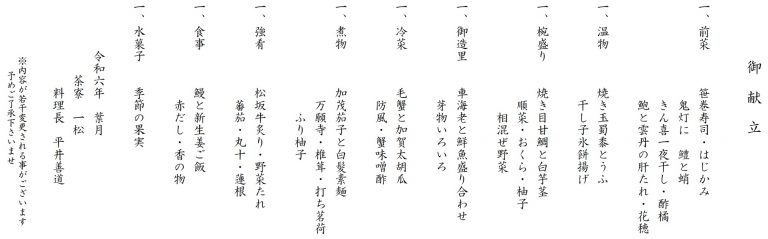 御献立
一、前菜　笹巻寿司・はじかみ
鬼灯に　鱧と蛸
きん喜一夜干し・酢橘
鮑と雲丹の肝たれ・花穂
一、温物　焼き玉蜀黍とうふ
干し子氷餅揚げ
一、椀盛り　焼き目甘鯛と白芋茎
順菜・おくら・柚子
相混ぜ野菜
一、御造里　車海老と鮮魚盛り合わせ
芽物いろいろ
一、冷菜　毛蟹と加賀太胡瓜
防風・蟹味噌酢
一、煮物　加茂茄子と白髪素麺
万願寺・椎茸・打ち茗荷
ふり柚子
一、強肴　松坂牛炙り・野菜たれ
蕃茄・丸十・蓮根
一、食事　鰻と新生姜ご飯
赤だし・香の物
一、水菓子　季節の果実
令和六年　葉月
茶寮　一松
料理長　平井善道
※内容が若干変更される事がございます
予めご了承下さいませ